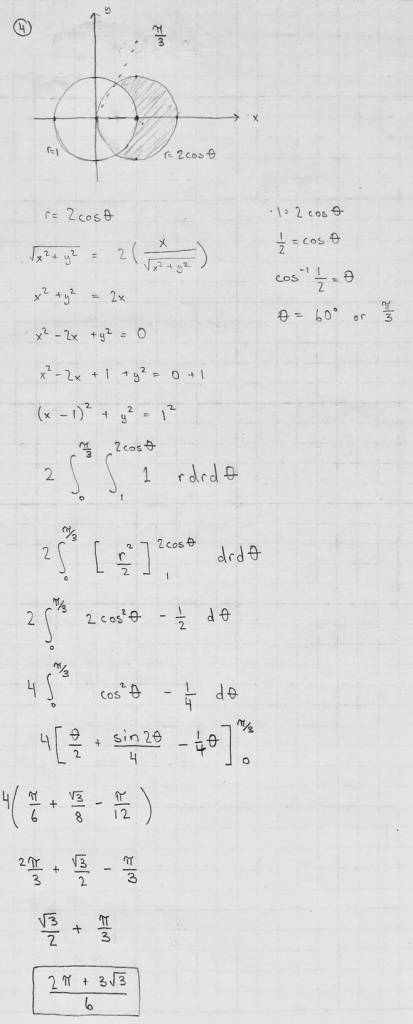 ④
y
π/3
x
r=1
r=2cosθ
r= 2cosθ
√(x²+y²) = 2(x/√(x²+y²))
x² + y² = 2x
x² - 2x + y² = 0
x² - 2x + 1 + y² = 0 + 1
(x - 1)² + y² = 1²
1 = 2 cos θ
1/2 = cos θ
cos⁻¹ 1/2 = θ
θ = 60° or π/3
2 ∫₀^(π/3) ∫₁^(2cosθ) 1 r dr dθ
2 ∫₀^(π/3) [r²/2]₁^(2cosθ) dr dθ
2 ∫₀^(π/3) 2cos²θ - 1/2 dθ
4 ∫₀^(π/3) cos²θ - 1/4 dθ
4 [θ/2 + sin2θ/4 - 1/4 θ]₀^(π/3)
4(π/6 + √3/8 - π/12)
2π/3 + √3/2 - π/3
√3/2 + π/3
(2π + 3√3)/6